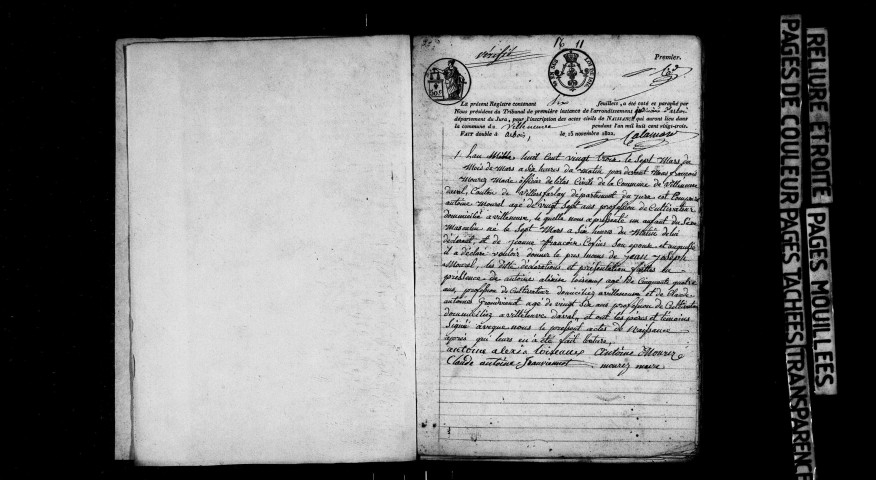 vérifié
16 11
Premier.
Le présent Registre contenant six feuillets, a été coté et paraphé par
Nous président du Tribunal de première instance de l'arrondissement d'Arbois
département du Jura, pour l'inscription des actes civils de NAISSANCE qui auront lieu dans
la commune de Villeneuve pendant l'an mil huit cent vingt-trois.
FAIT double à Arbois, le 15 novembre 1822.
L'an Mille huit Cent vingt trois le Sept Mars du
Mois de Mars a Six heures du Matin par devant Nous françois
Mourez Maire officier de l'état Civile de la Commune de Villeneuve
daval, Canton de Villersfarlay département du jura est Comparu
antoine Mourez agé de vingt Sept ans profession de Cultivateur
domicilié a villeneuve, le quelle nous a présenté un enfant du Sexe
Masculin né le Sept Mars a Six heures du Matin de lui
déclarant, et de jeanne françoise Son epouse et auquelle
il a déclaré vouloir donner les prénoms de jean joseph
Mourez, les ditte déclarations et présentation faittes en
présence de antoine alexise loiseaux agé de Cinquante quatre
ans, profession de Cultivateur domiciliez a villeneuve et de Claude
antoine agé de vingt Six ans profession de Cultivateur
domiciliez a villeneuve daval, et ont les pères et témoins
Signé aveque nous le présent actes de Naissance
après qui leurs en a été fait lecture,
antoine alexis loiseaux antoine Mourez
Claude antoine mourez maire
RELIURE ETROITE
PAGES MOUILLEES
PAGES DE COULEUR
PAGES TACHEES
TRANSPARENCE